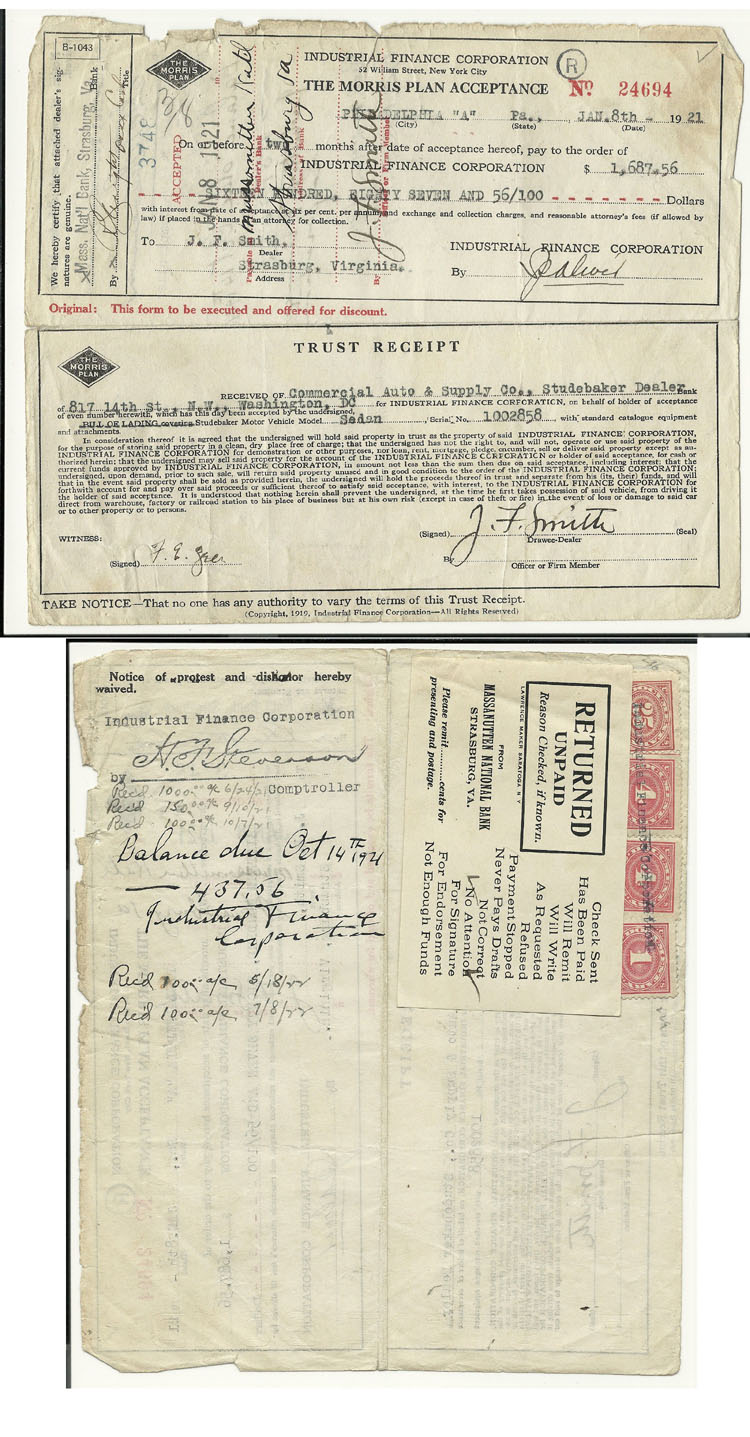 B-1043
We hereby certify that attached dealer's signatures are genuine.
Mass. Nat'l Bank, Strasburg, Va.
Bank
By
Title
THE MORRIS PLAN
INDUSTRIAL FINANCE CORPORATION
52 William Street, New York City
R
THE MORRIS PLAN ACCEPTANCE No. 24694
3748
PHILADELPHIA "A" Pa., JAN. 8th - 1921
(City) (State) (Date)
On or before two months after date of acceptance hereof, pay to the order of
INDUSTRIAL FINANCE CORPORATION $ 1,687.56
SIXTEEN HUNDRED, EIGHTY SEVEN AND 56/100 - - - - - - - Dollars
with interest from date of acceptance at six per cent. per annum and exchange and collection charges, and reasonable attorney's fees (if allowed by
law) if placed in the hands of an attorney for collection.
To J. F. Smith, INDUSTRIAL FINANCE CORPORATION
Dealer
Strasburg, Virginia. By
Address
ACCEPTED
JAN 8 1921
Payable at Massanutten Natl
Dealer's Bank
Strasburg Va
Address of Bank
J. F. Smith
By
Officer or Firm Member
Original: This form to be executed and offered for discount.
THE MORRIS PLAN
TRUST RECEIPT
RECEIVED OF Commercial Auto & Supply Co., Studebaker Dealer, Bank
of 817 14th St., N.W., Washington, DC for INDUSTRIAL FINANCE CORPORATION, on behalf of holder of acceptance
of even number herewith, which has this day been accepted by the undersigned,
BILL OF LADING covering Studebaker Motor Vehicle Model Sedan, Serial No. 1002858, with standard catalogue equipment
and attachments.
In consideration thereof it is agreed that the undersigned will hold said property in trust as the property of said INDUSTRIAL FINANCE CORPORATION,
for the purpose of storing said property in a clean, dry place free of charge; that the undersigned has not the right to, and will not, operate or use said property of the
INDUSTRIAL FINANCE CORPORATION for demonstration or other purposes, nor loan, rent, mortgage, pledge, encumber, sell or deliver said property except as authorized
herein; that the undersigned may sell said property for the account of the INDUSTRIAL FINANCE CORPORATION or holder of said acceptance, for cash or
current funds approved by INDUSTRIAL FINANCE CORPORATION, in amount not less than the sum then due on said acceptance, including interest; that the
undersigned, upon demand, prior to such sale, will return said property unused and in good condition to the order of the INDUSTRIAL FINANCE CORPORATION;
that in the event said property shall be sold as provided herein, the undersigned will hold the proceeds thereof in trust and separate from his (its, their) funds, and will
forthwith account for and pay over said proceeds or sufficient thereof to satisfy said acceptance, with interest, to the INDUSTRIAL FINANCE CORPORATION for
the holder of said acceptance. It is understood that nothing herein shall prevent the undersigned, at the time he first takes possession of said vehicle, from driving it
direct from warehouse, factory or railroad station to his place of business but at his own risk (except in case of theft or fire) in the event of loss or damage to said car
or to other property or to persons.
WITNESS: (Signed) J. F. Smith (Seal)
Drawee-Dealer
(Signed) F. E. By
Officer or Firm Member
TAKE NOTICE—That no one has any authority to vary the terms of this Trust Receipt.
(Copyright, 1919, Industrial Finance Corporation—All Rights Reserved)
Notice of protest and dishonor hereby
waived.
Industrial Finance Corporation
H. F. Stevenson
by
Comptroller
Rec'd 1000.00 a/c 6/24/21
Rec'd 150.00 a/c 9/10/21
Rec'd 100.00 a/c 10/7/21
Balance due Oct 14TH 1921
437.56
Industrial Finance
Corporation
Rec'd 100.00 a/c 5/18/22
Rec'd 100.00 a/c 7/8/22
RETURNED
UNPAID
Reason Checked, if known.
LAWRENCE MAKER SARATOGA N Y
FROM
MASSANUTTEN NATIONAL BANK
STRASBURG, VA.
Please remit..........cents for
presenting and postage.
Check Sent
Has Been Paid
Will Remit
Will Write
As Requested
Refused
Payment Stopped
Never Pays Drafts
Not Correct
No Attention
For Signature
For Endorsement
Not Enough Funds
Industrial Finance Corporation
25
1
1
1